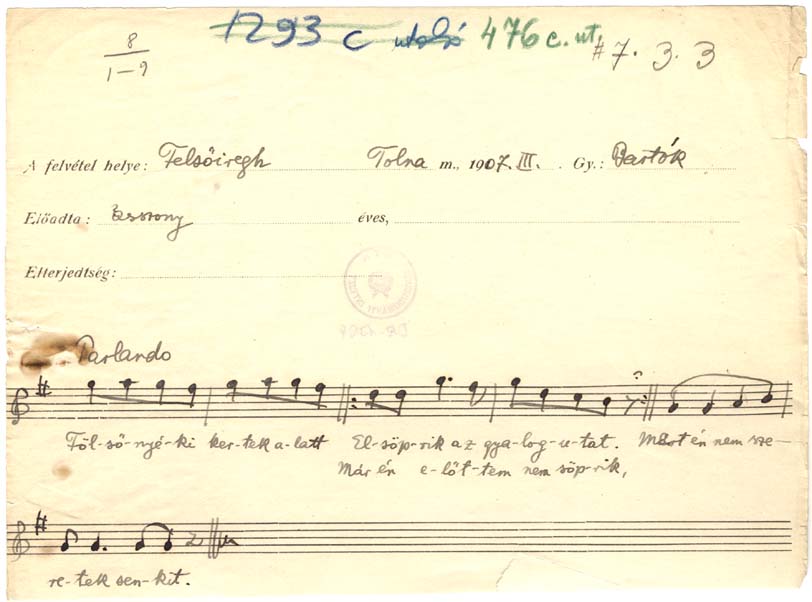 8
1-9
1293 c utolsó 476 c. ut.
#7. 3. 3
A felvétel helye: Felsőiregh Tolna m., 1907. III. Gy.: Bartók
Előadta: asszony éves,
Elterjedtség:
Parlando
Föl-ső-nyé-ki ker-tek a-latt El-söp-rik az gya-log-u-tat. Mert én nem sze-
Már én e-lőt-tem nem söp-rik,
re-tek sen-kit.